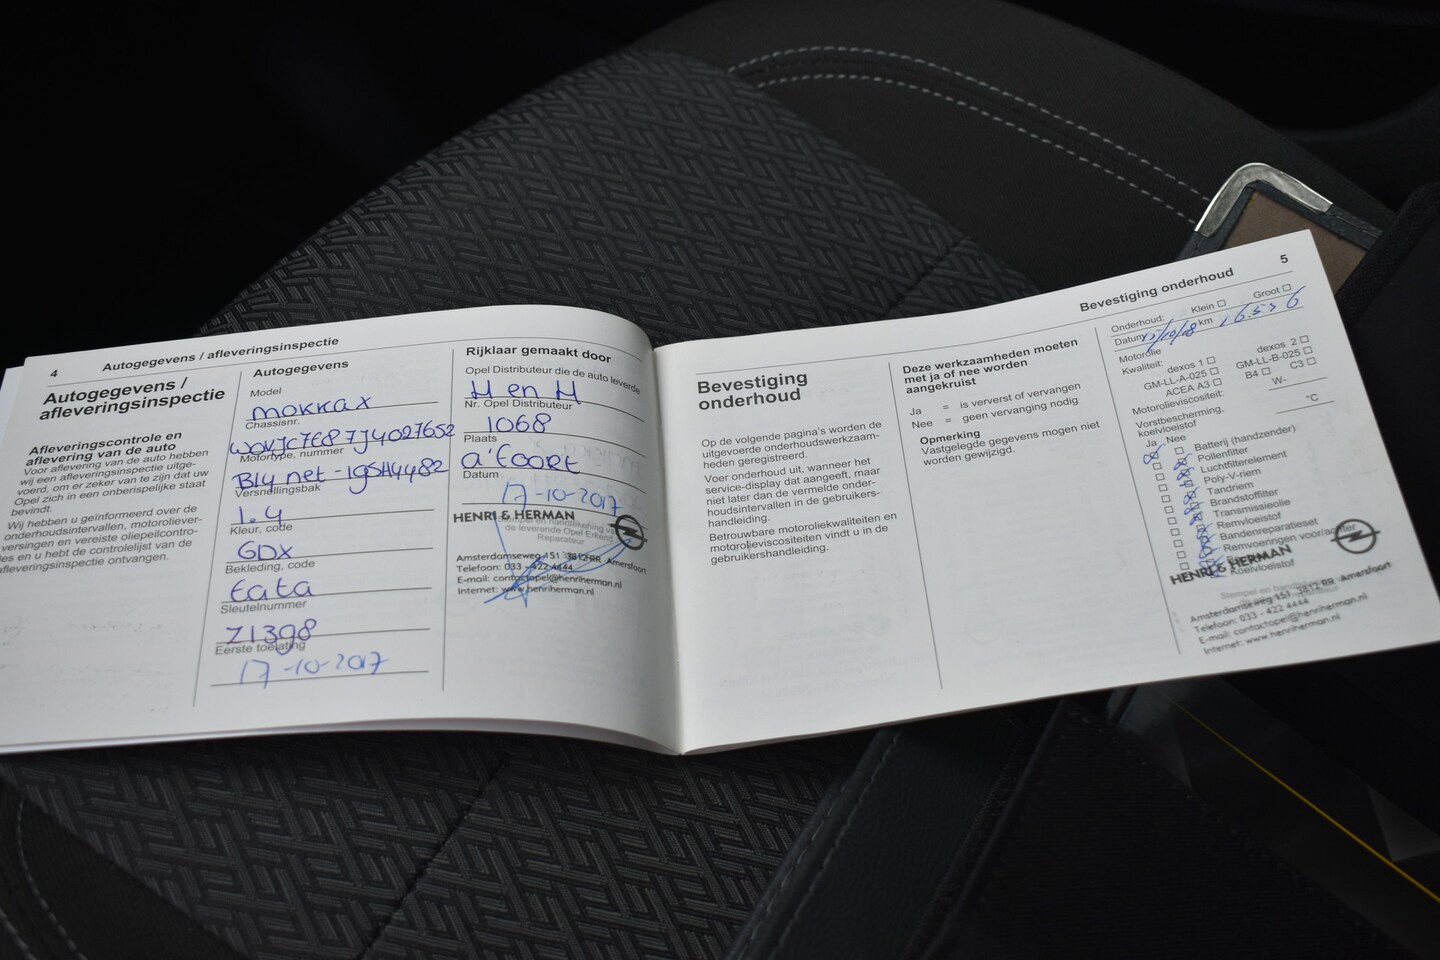 4 Autogegevens / afleveringsinspectie
Autogegevens /
afleveringsinspectie
Afleveringscontrole en
aflevering van de auto
Voor aflevering van de auto hebben
wij een afleveringsinspectie uitge-
voerd, om er zeker van te zijn dat uw
Opel zich in een onberispelijke staat
bevindt.
Wij hebben u geïnformeerd over de
onderhoudsintervallen, motoroliever-
versingen en vereiste oliepeilcontro-
les en u hebt de controlelijst van de
afleveringsinspectie ontvangen.
Autogegevens
Model
mokka x
Chassisnr.
W0VJC7E87J4027652
Motortype, nummer
Versnellingsbak
1.4
Kleur, code
GDX
Bekleding, code
tata
Sleutelnummer
Z1398
Eerste toelating
17-10-2017
Rijklaar gemaakt door
Opel Distributeur die de auto leverde
H en H
Nr. Opel Distributeur
1068
Plaats
a'foort
Datum
17-10-2017
HENRI & HERMAN
Stempel en handtekening van
de leverende Opel Erkend
Reparateur
Amsterdamseweg 151 3812 RR Amersfoort
Telefoon: 033 - 422 4444
E-mail: contactopel@henriherman.nl
Internet: www.henriherman.nl
Bevestiging onderhoud 5
Bevestiging
onderhoud
Op de volgende pagina's worden de
uitgevoerde onderhoudswerkzaam-
heden geregistreerd.
Voer onderhoud uit, wanneer het
service-display dat aangeeft, maar
niet later dan de vermelde onder-
houdsintervallen in de gebruikers-
handleiding.
Betrouwbare motoroliekwaliteiten en
motorolieviscositeiten vindt u in de
gebruikershandleiding.
Deze werkzaamheden moeten
met ja of nee worden
aangekruist
Ja = is ververst of vervangen
Nee = geen vervanging nodig
Opmerking
Vastgelegde gegevens mogen niet
worden gewijzigd.
Onderhoud: Klein Groot
Datum km
Motorolie
Kwaliteit: dexos 1 dexos 2
GM-LL-A-025 GM-LL-B-025
ACEA A3 B4 C3
Motorolieviscositeit: W-
Vorstbescherming,
koelvloeistof °C
Ja Nee
Batterij (handzender)
Pollenfilter
Luchtfilterelement
Poly-V-riem
Tandriem
Brandstoffilter
Transmissieolie
Remvloeistof
Bandenreparatieset
Remvoeringen voor/achter
Koelvloeistof
HENRI & HERMAN
Amsterdamseweg 151 3812 RR Amersfoort
Telefoon: 033 - 422 4444
E-mail: contactopel@henriherman.nl
Internet: www.henriherman.nl